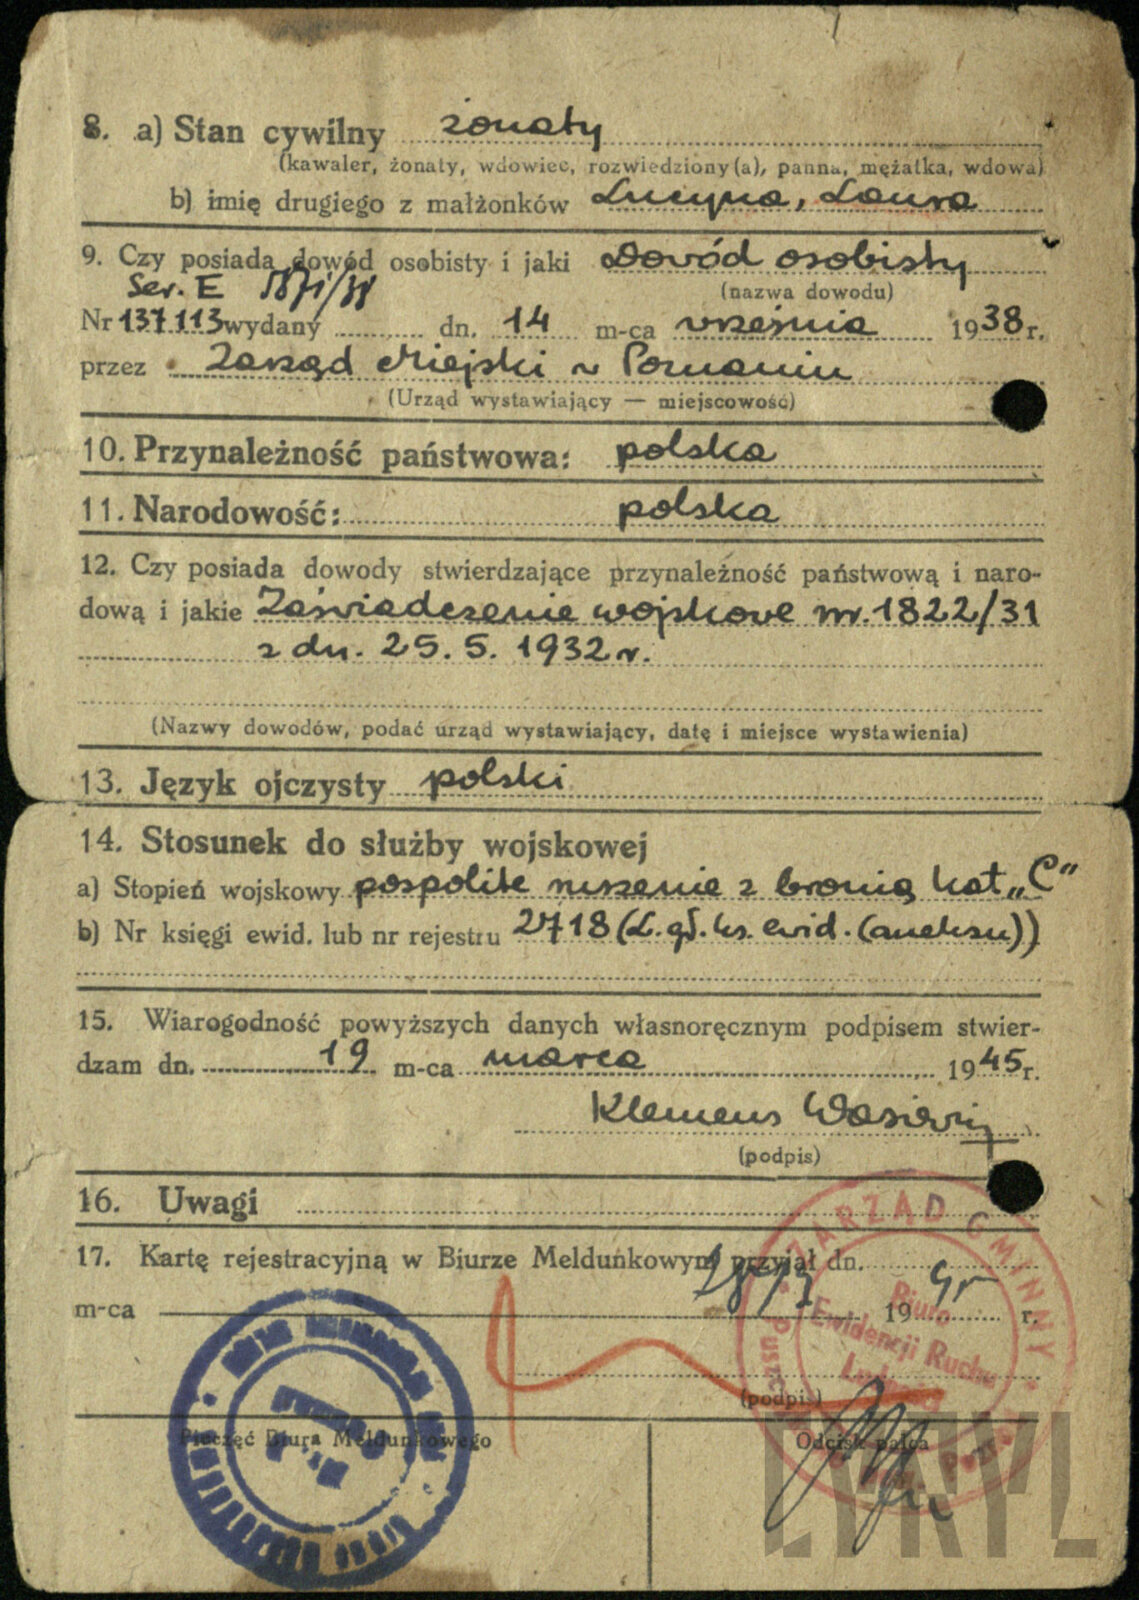 8. a) Stan cywilny żonaty
(kawaler, żonaty, wdowiec, rozwiedziony(a), panna, mężatka, wdowa)
b) imię drugiego z małżonków Lucyna, Laura
9. Czy posiada dowód osobisty i jaki Dowód osobisty
(nazwa dowodu)
Ser. E
Nr 137113 wydany dn. 14 m-ca września 1938 r.
przez Zarząd Miejski w Poznaniu
(Urząd wystawiający — miejscowość)
10. Przynależność państwowa: polska
11. Narodowość: polska
12. Czy posiada dowody stwierdzające przynależność państwową i naro-
dową i jakie Zaświadczenie wojskowe nr. 1822/31
z dn. 25. 5. 1932 r.
(Nazwy dowodów, podać urząd wystawiający, datę i miejsce wystawienia)
13. Język ojczysty polski
14. Stosunek do służby wojskowej
a) Stopień wojskowy pospolite ruszenie z bronią kat „C"
b) Nr księgi ewid. lub nr rejestru 2718 (L. gł. ks. ewid. (aneksu))
15. Wiarogodność powyższych danych własnoręcznym podpisem stwier-
dzam dn. 19 m-ca marca 1945 r.
Klemens
(podpis)
16. Uwagi
17. Kartę rejestracyjną w Biurze Meldunkowym przyjął dn.
m-ca 19 45 r.
(podpis)
Pieczęć Biura Meldunkowego
Odcisk palca
ZARZĄD GMINNY
Biuro
Ewidencji Ruchu
CYRYL